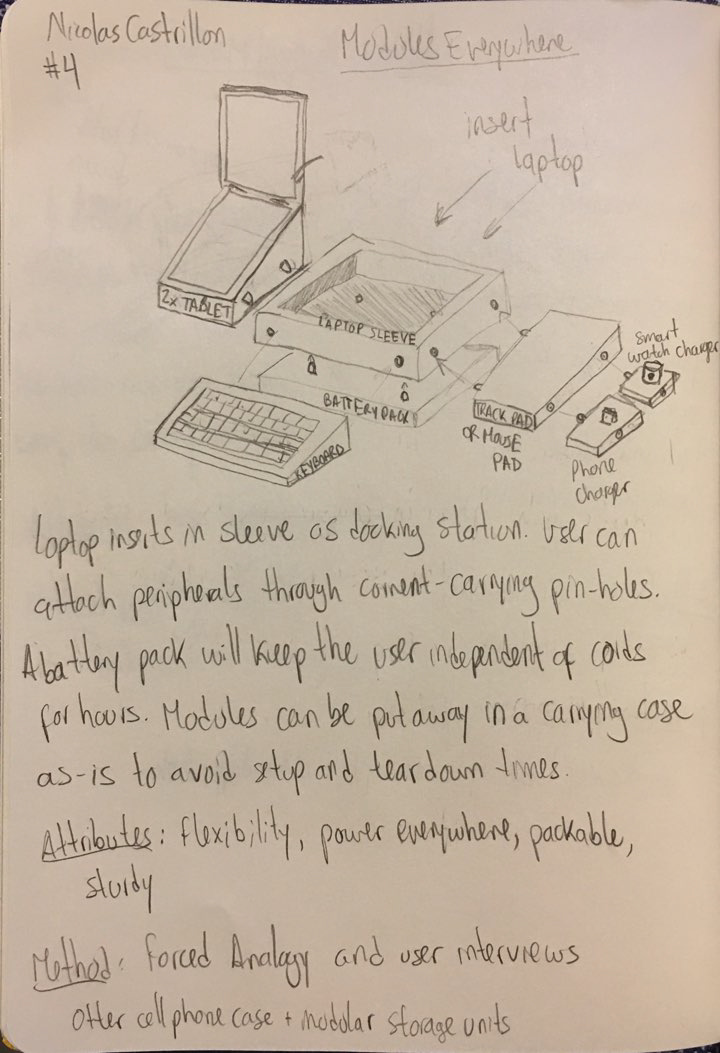 Nicolas Castrillon
#4
Modules Everywhere
insert
laptop
2x TABLET
LAPTOP SLEEVE
BATTERY PACK
KEYBOARD
TRACK PAD
OR MOUSE
PAD
smart
watch charger
phone
charger
Laptop inserts in sleeve as docking station. User can
attach peripherals through current-carrying pin-holes.
A battery pack will keep the user independent of cords
for hours. Modules can be put away in a carrying case
as-is to avoid setup and teardown times.
Attributes: flexibility, power everywhere, packable,
sturdy
Method: Forced Analogy and user interviews
Otter cell phone case + modular storage units